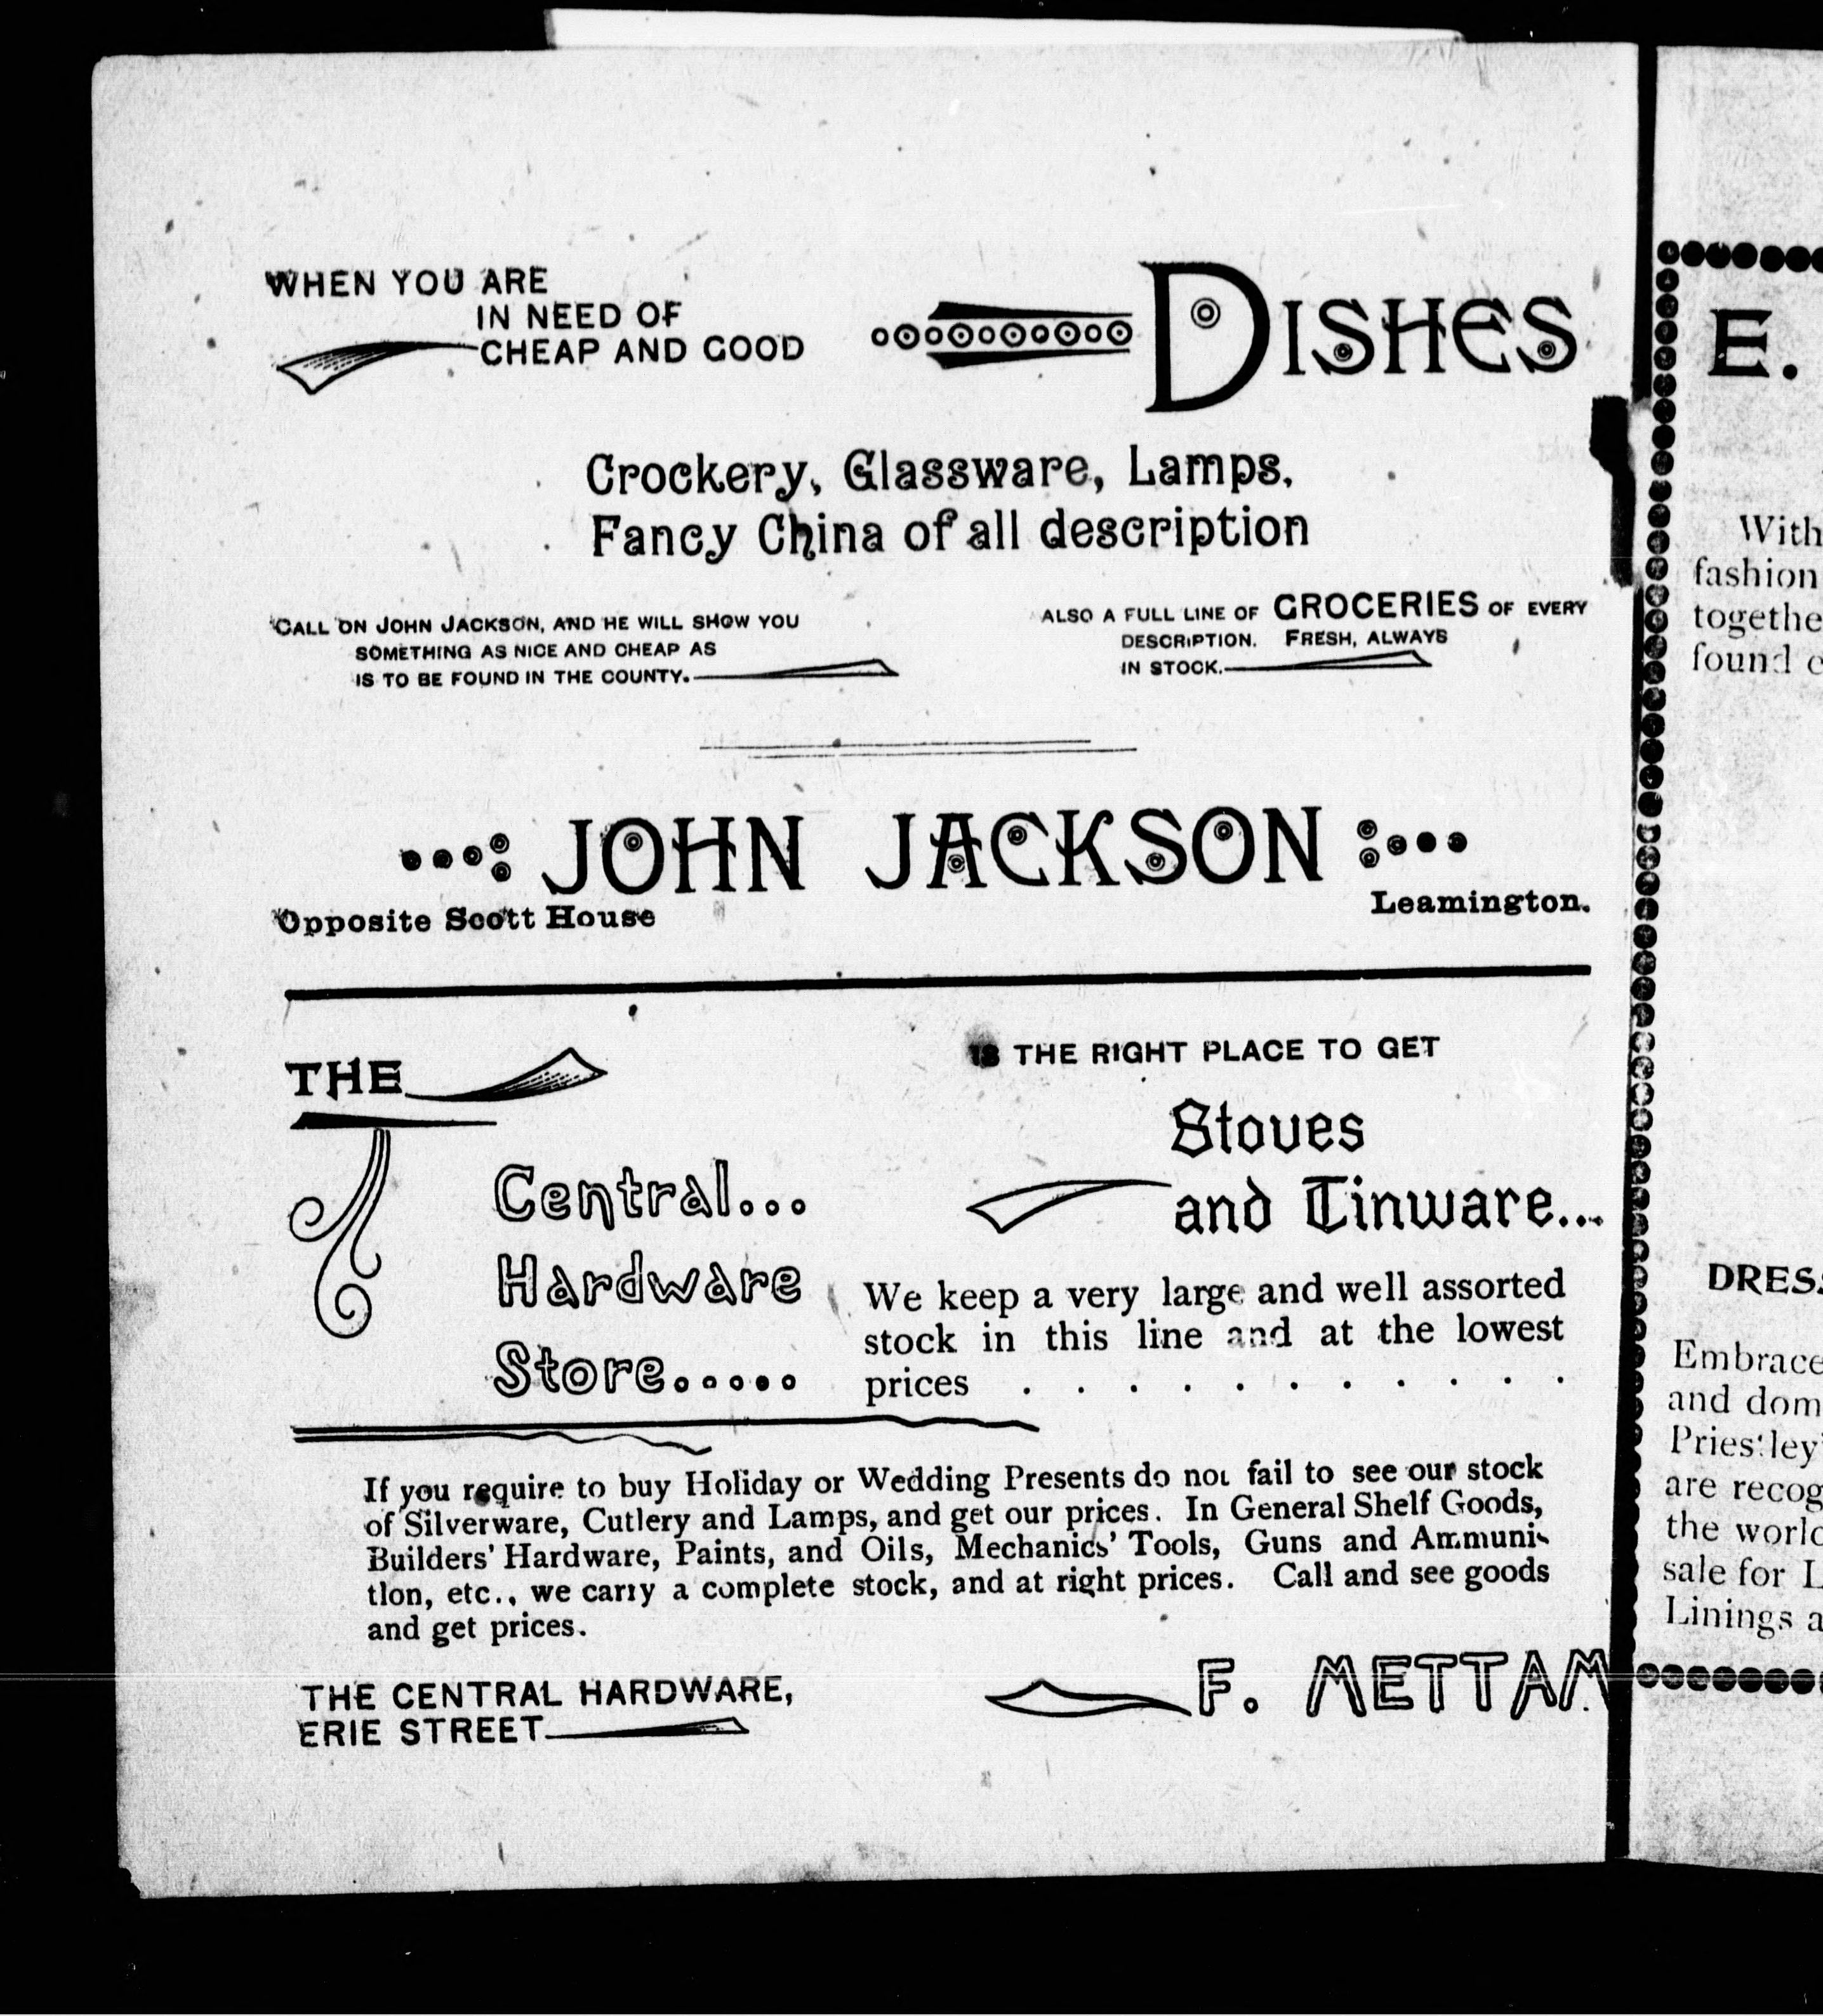 WHEN YOU ARE
IN NEED OF
CHEAP AND GOOD
DISHES
Crockery, Glassware, Lamps,
Fancy China of all description
CALL ON JOHN JACKSON, AND HE WILL SHOW YOU
SOMETHING AS NICE AND CHEAP AS
IS TO BE FOUND IN THE COUNTY.
ALSO A FULL LINE OF GROCERIES OF EVERY
DESCRIPTION. FRESH, ALWAYS
IN STOCK.
JOHN JACKSON
Opposite Scott House
Leamington.
THE
Central...
Hardware
Store.....
IS THE RIGHT PLACE TO GET
Stoves
and Tinware...
We keep a very large and well assorted
stock in this line and at the lowest
prices . . . . . . . . . . .
If you require to buy Holiday or Wedding Presents do not fail to see our stock
of Silverware, Cutlery and Lamps, and get our prices. In General Shelf Goods,
Builders' Hardware, Paints, and Oils, Mechanics' Tools, Guns and Ammuni-
tion, etc., we carry a complete stock, and at right prices. Call and see goods
and get prices.
THE CENTRAL HARDWARE,
ERIE STREET
F. METTAM
E.
With
fashion
togethe
found
DRESS
Embrace
and dom
Priestley'
are recog
the world
sale for L
Linings a